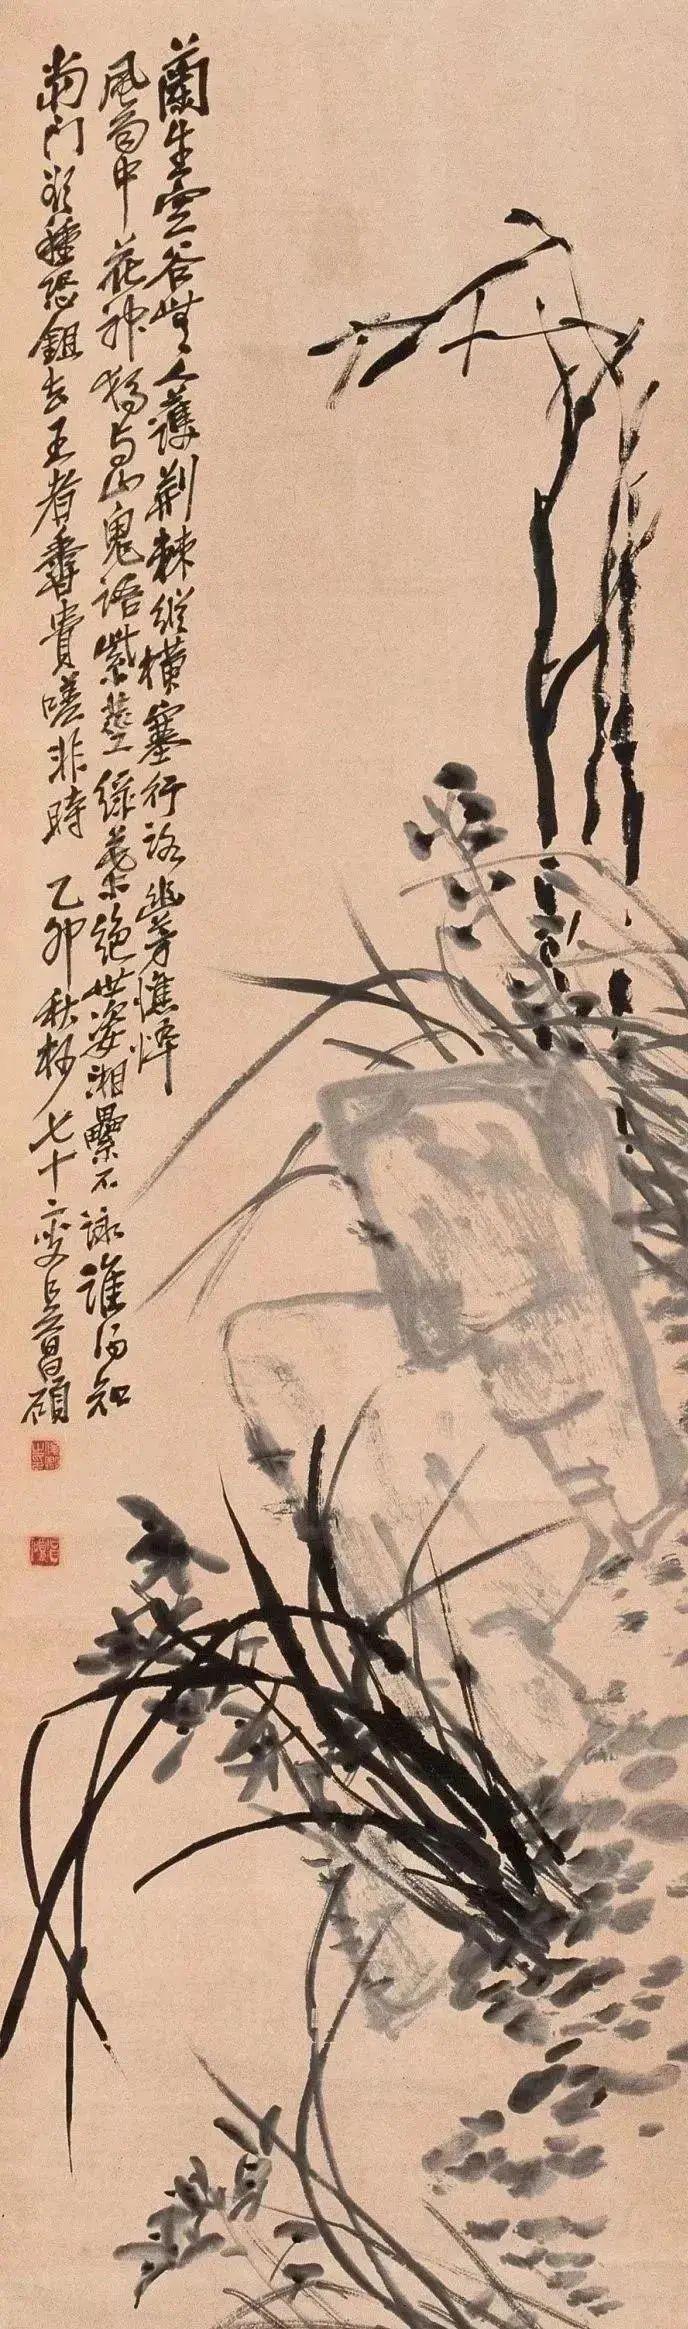 蘭生空谷無人護荊棘縱橫塞行路幽芳憔悴
風雨中花神獨與山鬼語紫莖綠葉絕世姿湘纍不詠誰得知
當門欲種恐鉏去王者香貴嗟非時 乙卯秋杪七十二叟吳昌碩